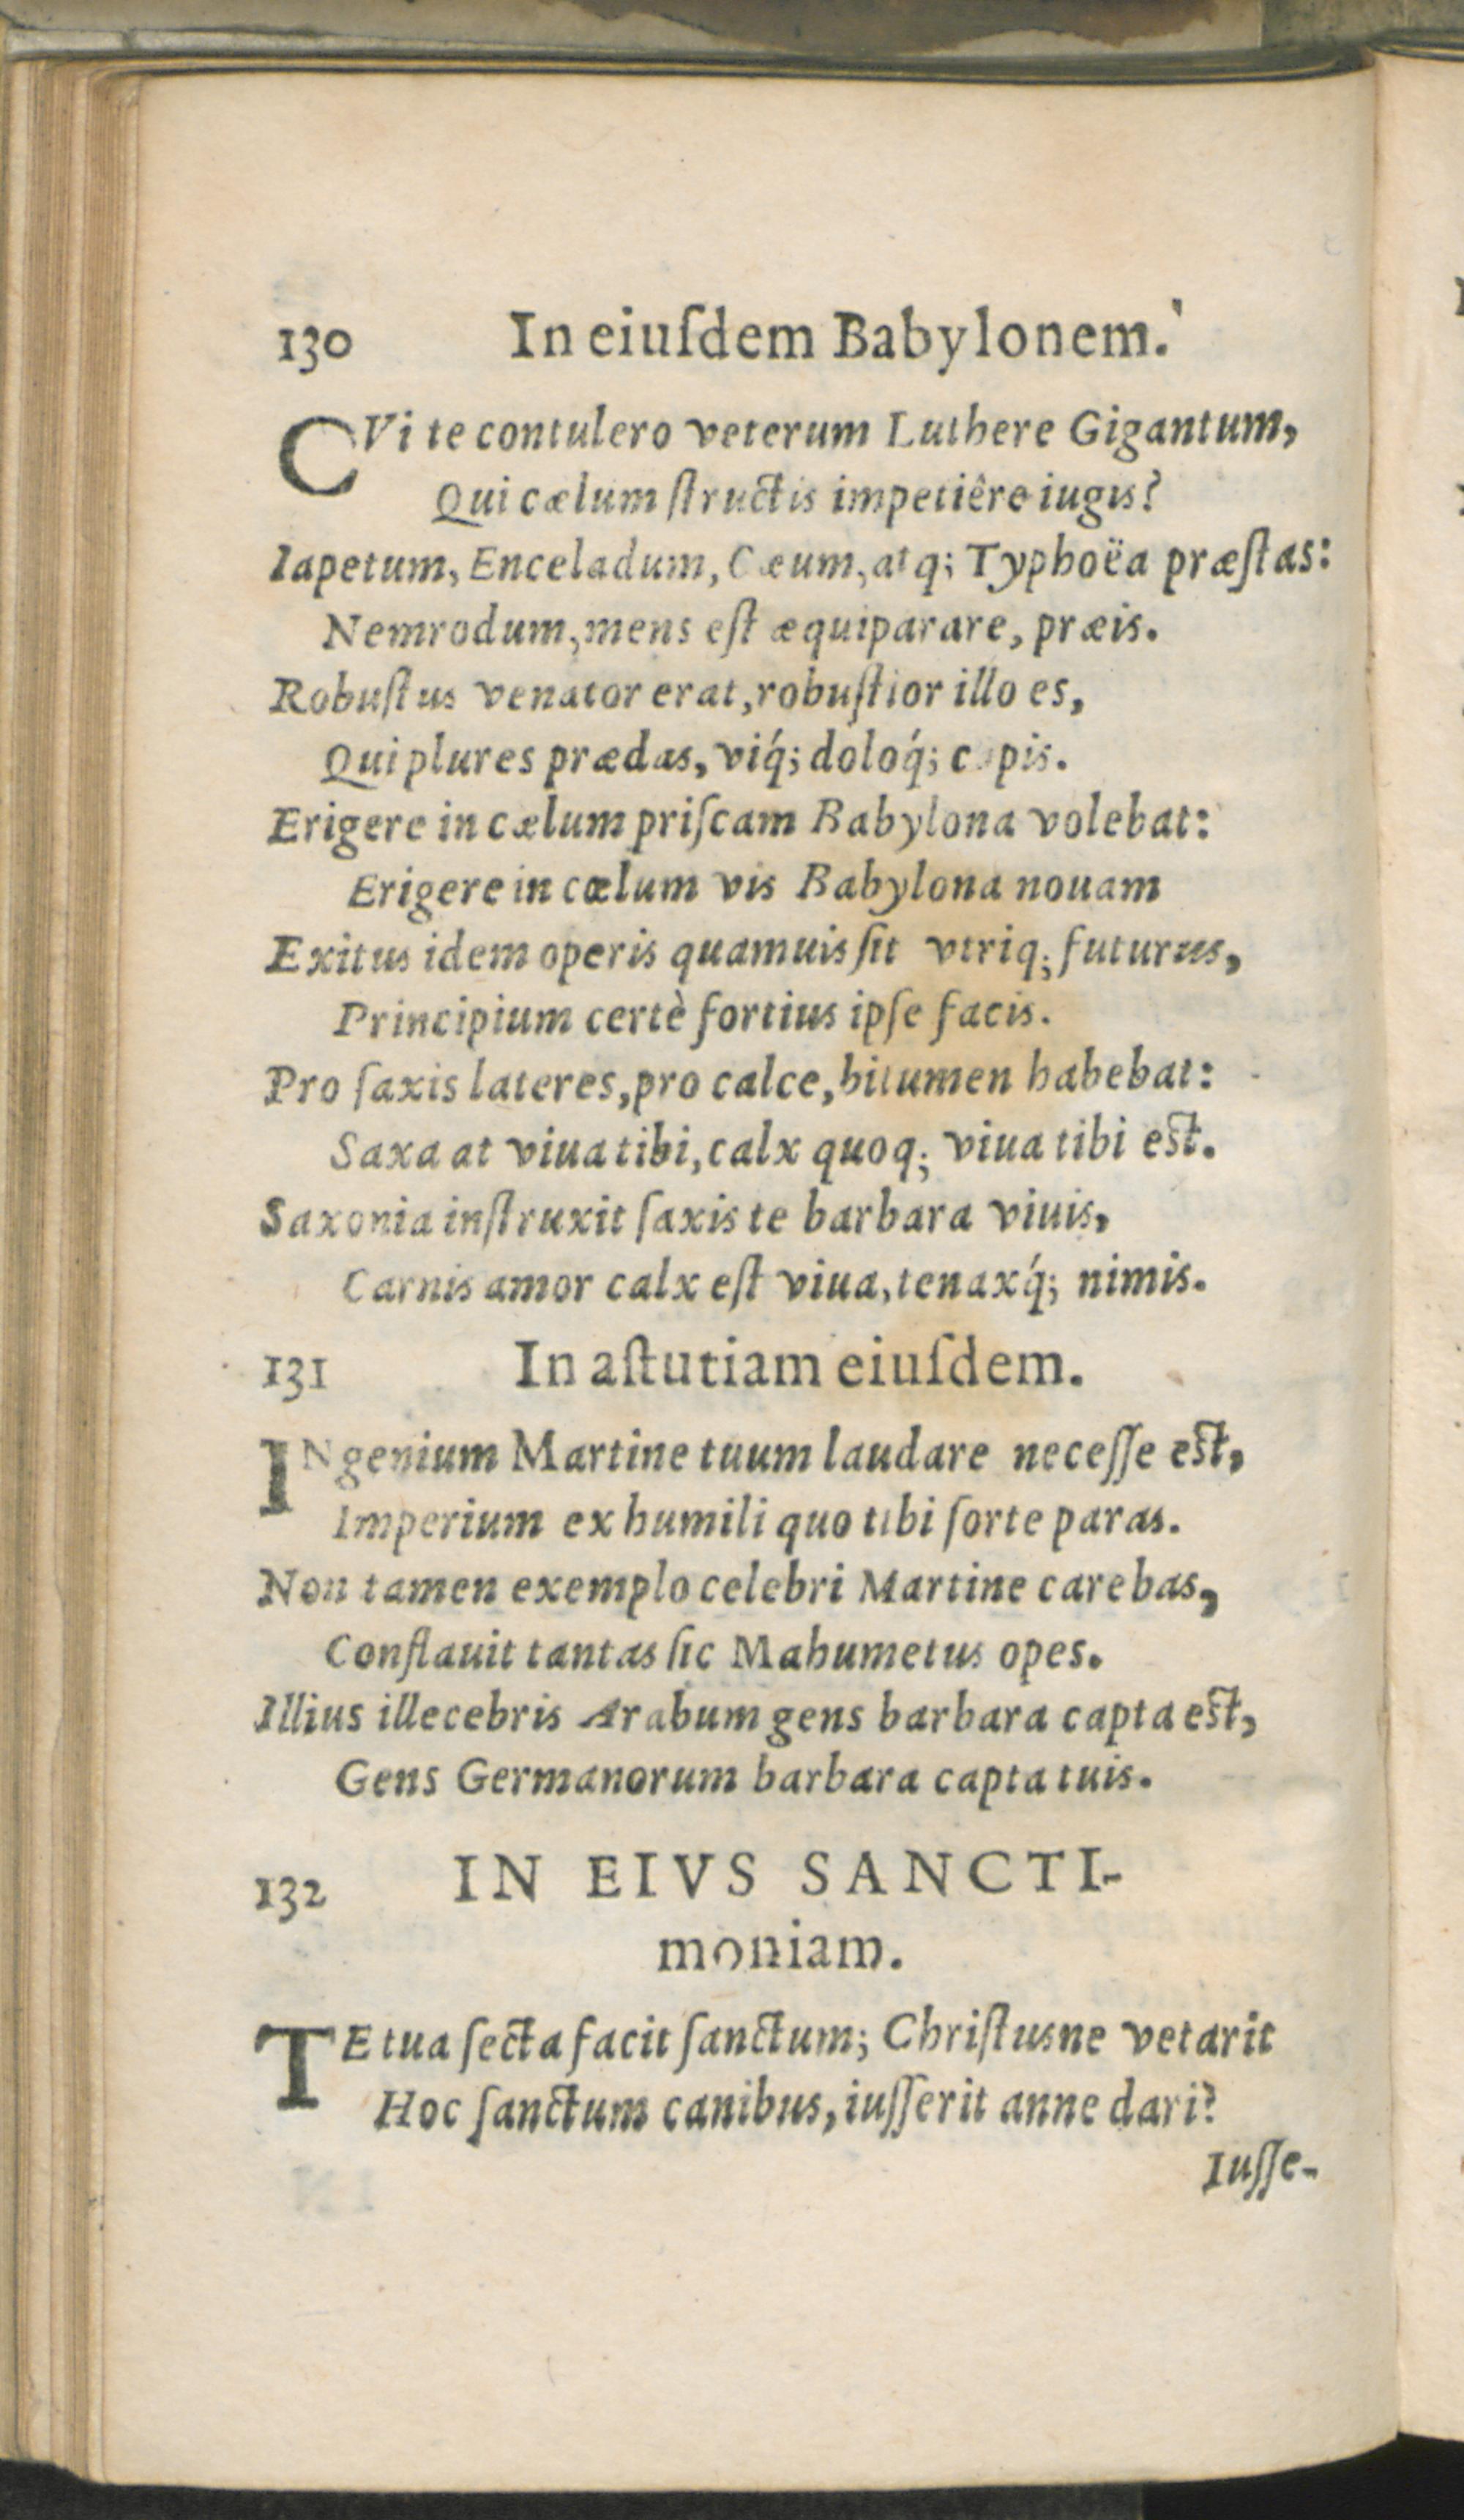 130 In eiuſdem Babylonem.
CVi te contulero veterum Luthere Gigantum,
Qui cælum ſtructis impetiêre iugis?
Iapetum, Enceladum, Cæum, atq; Typhoëa præſtas:
Nemrodum, mens eſt æquiparare, præis.
Robuſtus venator erat, robuſtior illo es,
Qui plures prædas, viq́; doloq́; capis.
Erigere in cælum priſcam Babylona volebat:
Erigere in cælum vis Babylona nouam
Exitus idem operis quamuis ſit vtriq; futurus,
Principium certè fortius ipſe facis.
Pro ſaxis lateres, pro calce, bitumen habebat:
Saxa at viua tibi, calx quoq; viua tibi est.
Saxonia inſtruxit ſaxis te barbara viuis,
Carnis amor calx eſt viua, tenaxq́; nimis.
131 In aſtutiam eiuſdem.
INgenium Martine tuum laudare neceſſe est,
Imperium ex humili quo tibi ſorte paras.
Non tamen exemplo celebri Martine carebas,
Conflauit tantas ſic Mahumetus opes.
Illius illecebris Arabum gens barbara capta est,
Gens Germanorum barbara capta tuis.
132 IN EIVS SANCTI-
moniam.
TE tua ſecta facit ſanctum; Chriſtusne vetarit
Hoc ſanctum canibus, iuſſerit anne dari?
Iuſſe-